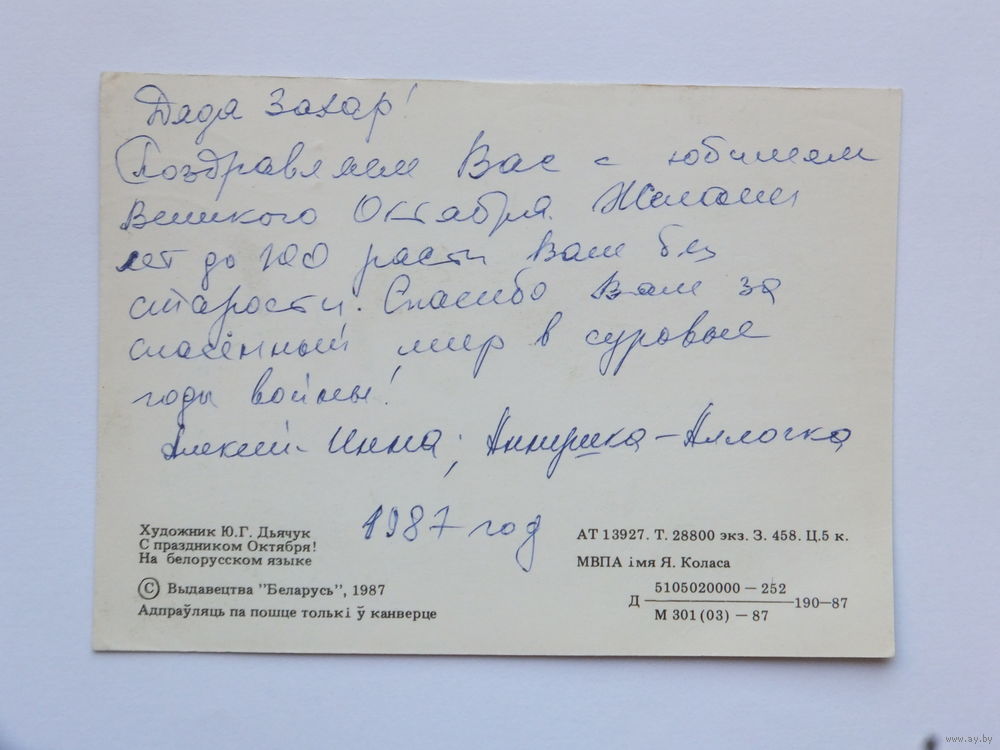 Дядя Захар!
Поздравляем Вас с юбилеем
Великого Октября. Желаем
лет до 100 расти Вам без
старости. Спасибо Вам за
спасённый мир в суровые
годы войны!
Алексей - Инна; Аннушка - Аллочка
1987 год
Художник Ю.Г. Дьячук
С праздником Октября!
На белорусском языке
© Выдавецтва "Беларусь", 1987
Адпраўляць па пошце толькі ў канверце
АТ 13927. Т. 28800 экз. З. 458. Ц.5 к.
МВПА імя Я. Коласа
5105020000 — 252
Д 190—87
М 301 (03) — 87
www.ay.by